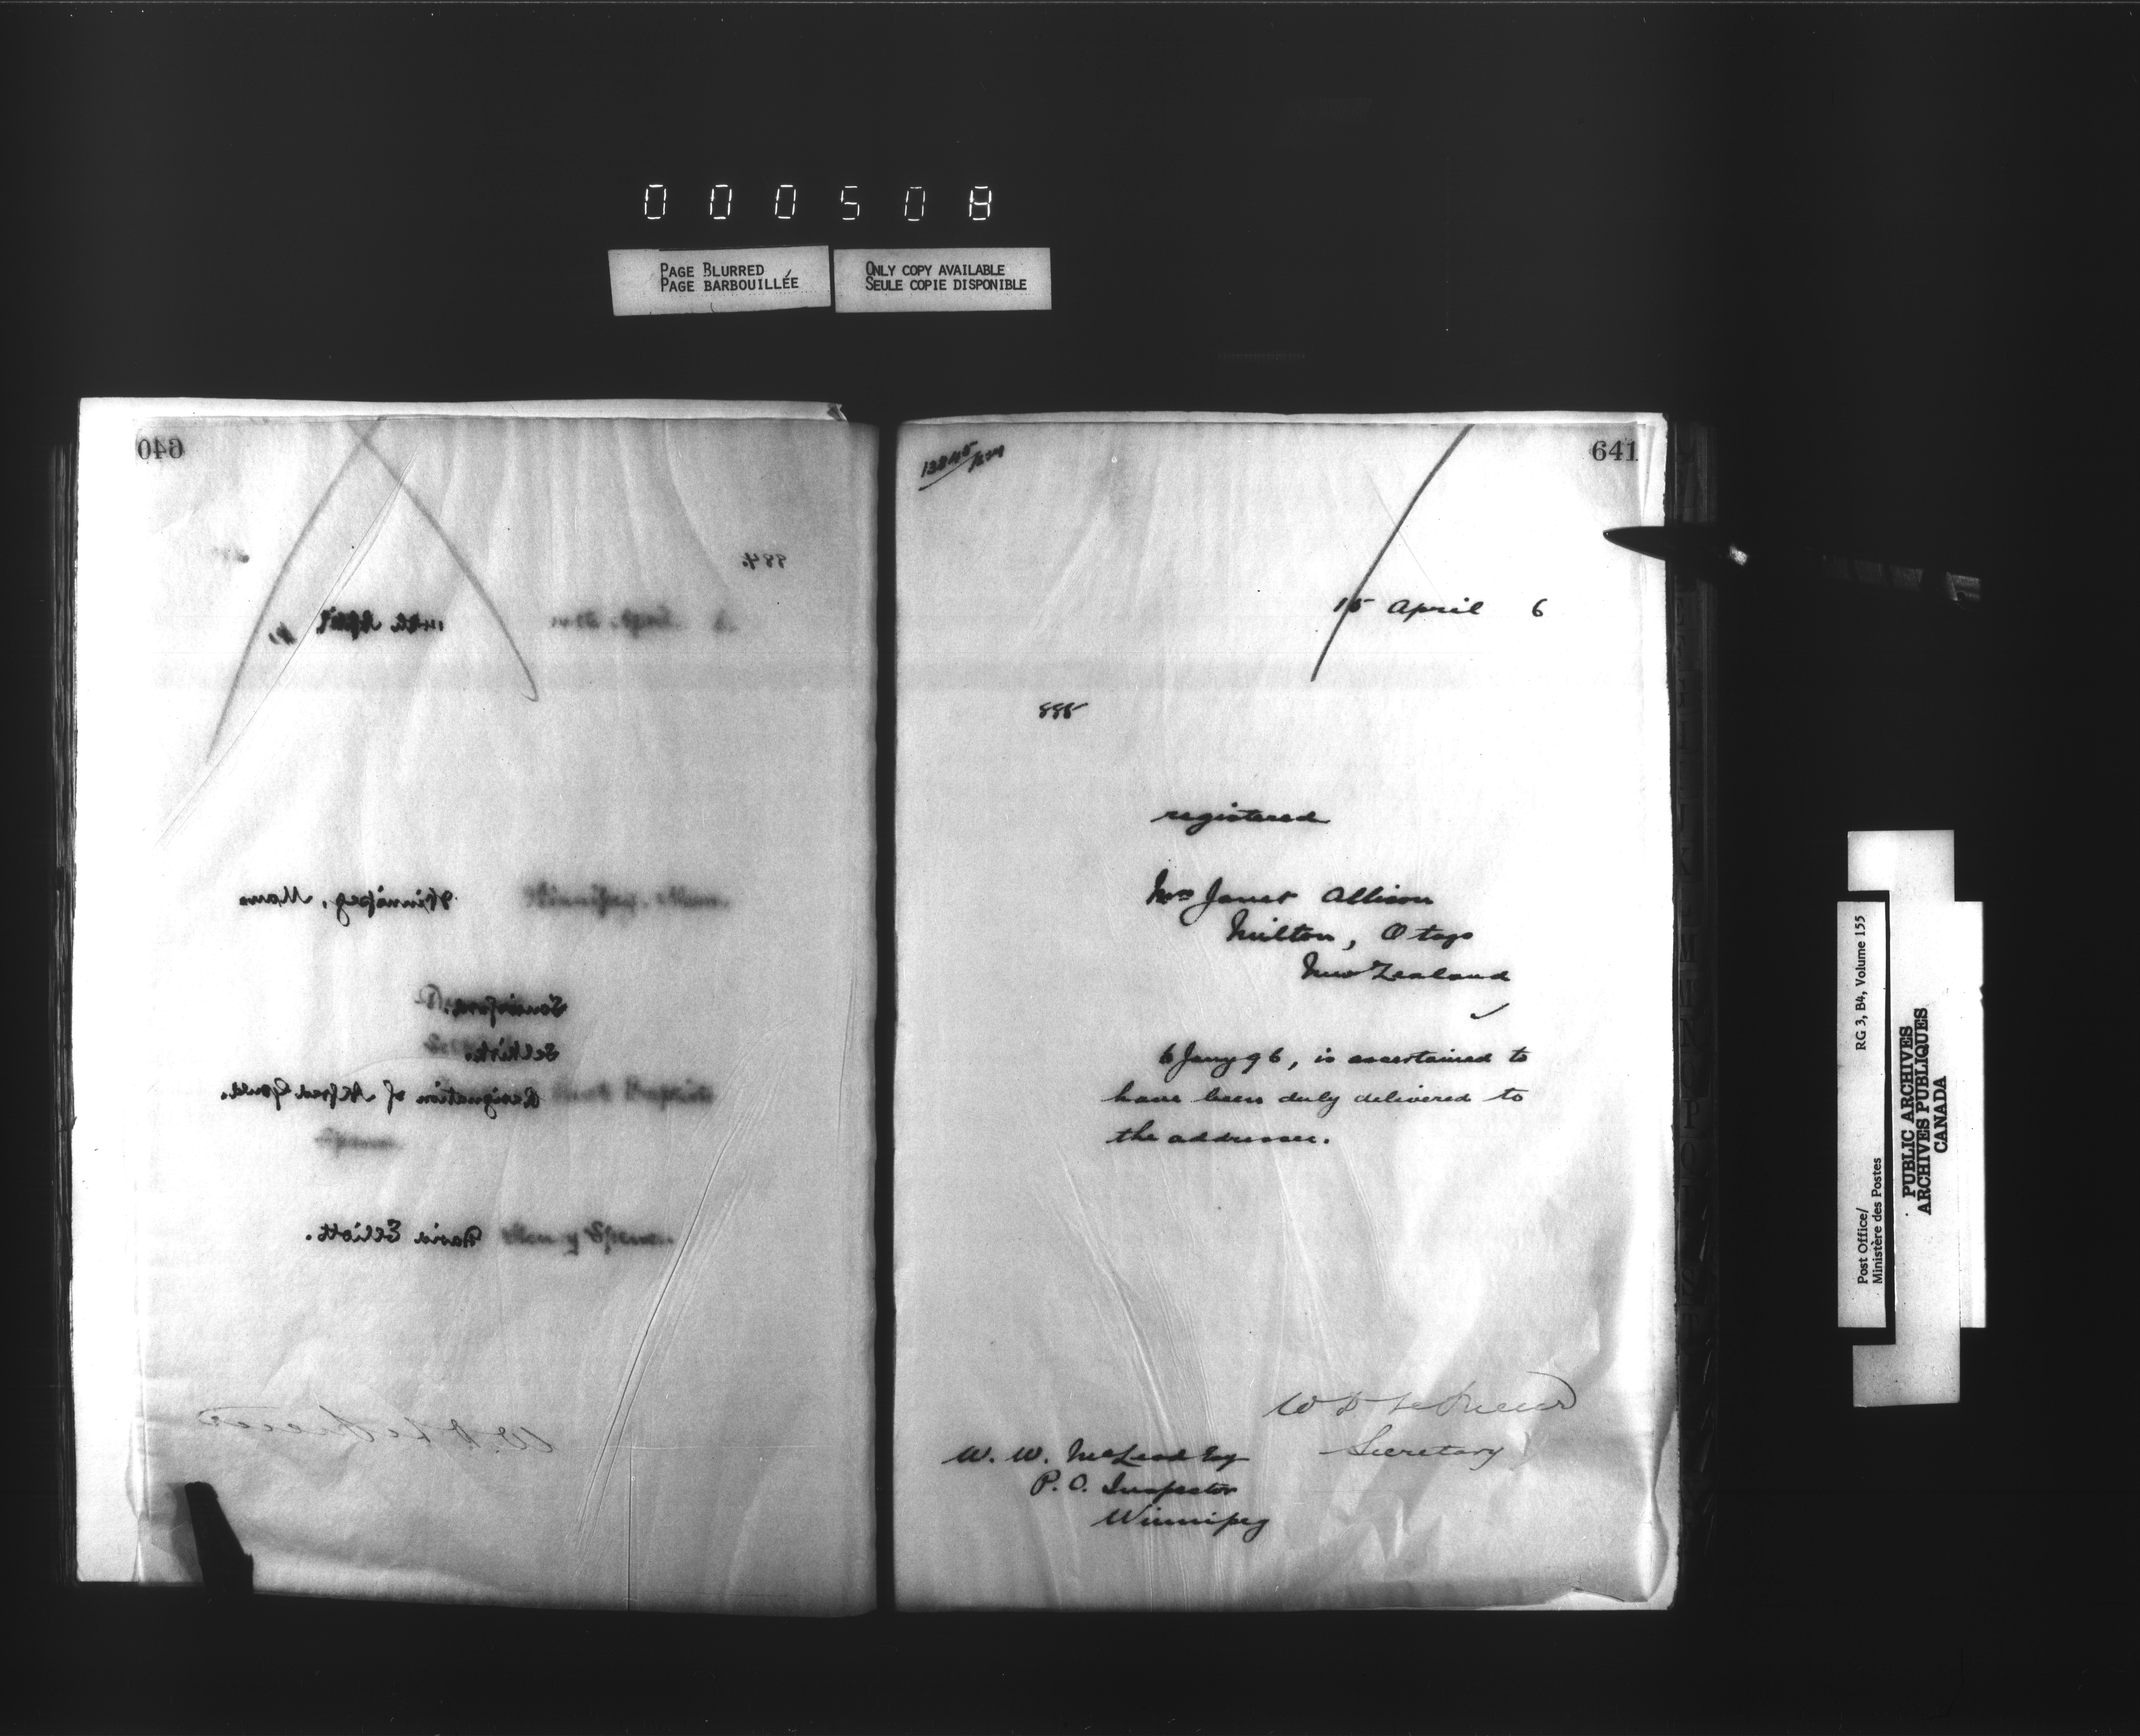 000508
PAGE BLURRED
PAGE BARBOUILLÉE
ONLY COPY AVAILABLE
SEULE COPIE DISPONIBLE
640
884.
14th April
Winnipeg, Man.
Selkirk.
Resignation of Alfred Gould.
David Elliott.
641
15 April 6
885
registered
Mrs Janet Allison
Milton, Otago
New Zealand
6 Jany 96, is ascertained to
have been duly delivered to
the addressee.
W D LeSueur
Secretary
W. W. McLeod Esq
P. O. Inspector
Winnipeg
Post Office/
Ministère des Postes
RG 3, B4, Volume 155
PUBLIC ARCHIVES
ARCHIVES PUBLIQUES
CANADA